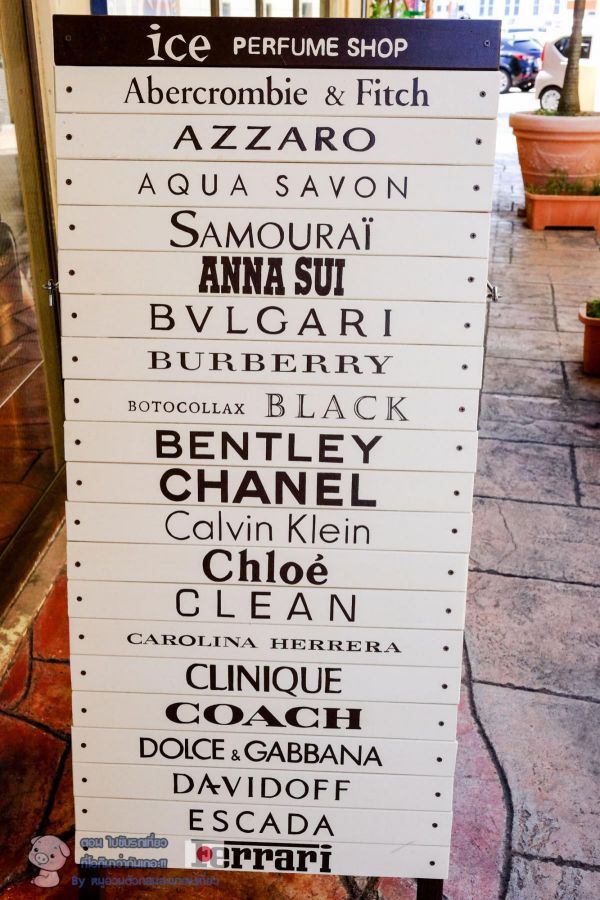 ice PERFUME SHOP
Abercrombie & Fitch
AZZARO
AQUA SAVON
SAMOURAÏ
ANNA SUI
BVLGARI
BURBERRY
BOTOCOLLAX BLACK
BENTLEY
CHANEL
Calvin Klein
Chloé
CLEAN
CAROLINA HERRERA
CLINIQUE
COACH
DOLCE & GABBANA
DAVIDOFF
ESCADA
Ferrari
ตอน ไปขับรถเที่ยว
By หมูอ้วนตัวกลมสะพายกล้องเที่ยว